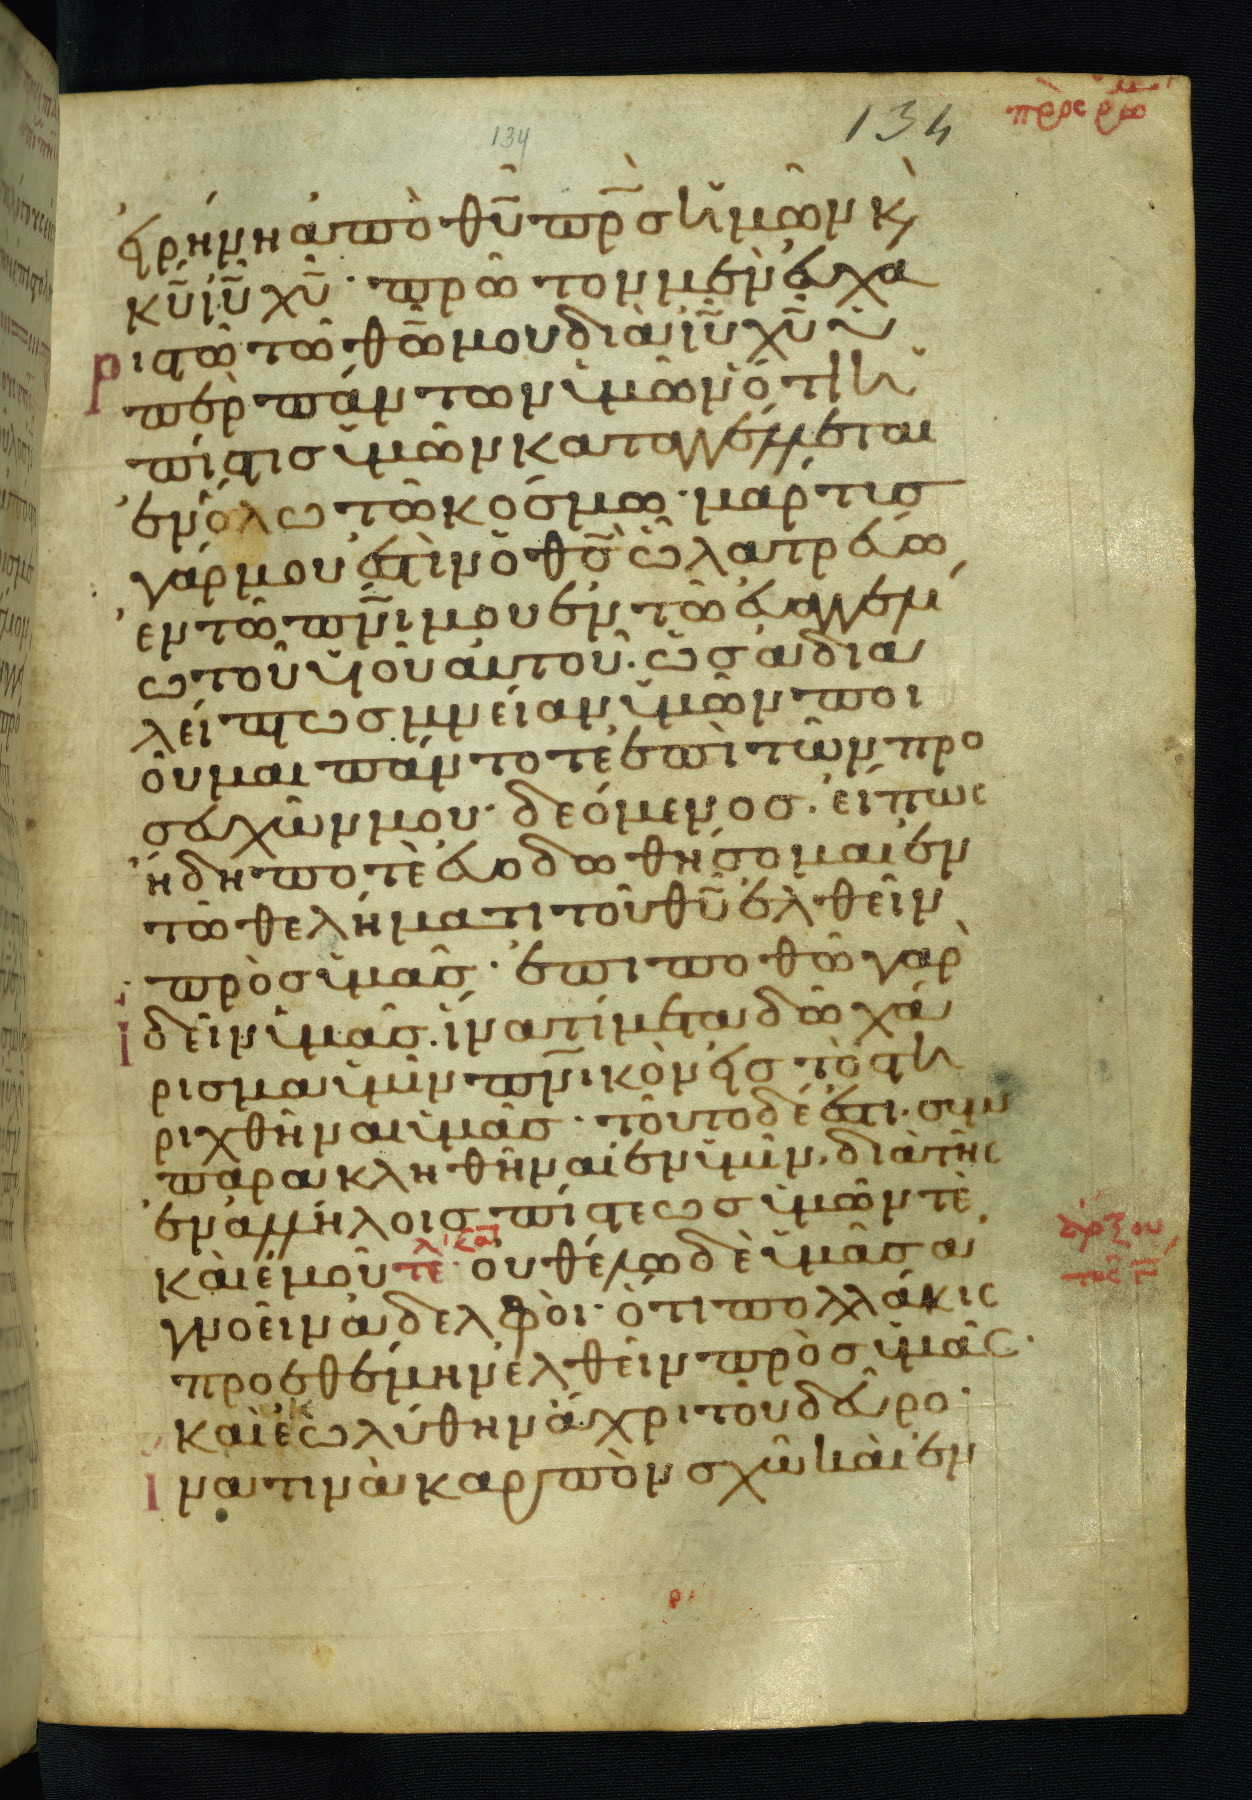 134
134
πρὸς ρωμ
εἰρήνη ἀπὸ θῦ πρ̅σ ἡμῶν κ(αὶ)
κῦ ἰῦ χῦ· πρῶτον μὲν εὐχα
ριστῶ τῶ θῶ μου διὰ ἰῦ χῦ ὑ
πὲρ πάντων ὑμῶν ὅτι ἡ
πίστισ ὑμῶν καταγγέλλεται
ἐν ὅλω τῶ κόσμω· μάρτισ
γάρ μου ἐστὶν ὁ θσ̅ ὧ λατρεύω,
ἐν τῶ πνι̅ μου ἐν τῶ εὐαγγελί
ω τοῦ υἱοῦ αὐτοῦ· ὡσ ἀδια
λείπτωσ μνείαν ὑμῶν ποι
οῦμαι πάντοτε ἐπὶ τῶν προ
σευχῶν μου· δεόμενοσ· εἴπωσ
ἤδη ποτὲ εὐοδωθήσομαι ἐν
τῶ θελήματι τοῦ θῦ ἐλθεῖν
πρὸσ ὑμᾶσ· ἐπιποθῶ γὰρ
ἰδεῖν ὑμᾶσ· ἵνα τί μεταδῶ χά
ρισμα ὑμῖν πνικὸν εἰσ τὸ στη
ριχθῆναι ὑμᾶσ· τοῦτο δέ ἐστι· συμ
παρακληθῆναι ἐν ὑμῖν· διὰ τῆσ
ἐν ἀλλήλοισ πίστεωσ ὑμῶν τὲ
καὶ ἐμοῦ τε· οὐ θέλω δὲ ὑμᾶσ ἀ
γνοεῖν ἀδελφοὶ· ὅτι πολλάκισ
προεθέμην ἐλθεῖν πρὸσ ὑμᾶσ·
καὶ ἐκωλύθην ἄχρι τοῦ δεῦρο·
ἵνα τινὰ καρπὸν σχῶ καὶ ἐν
ἄρξου